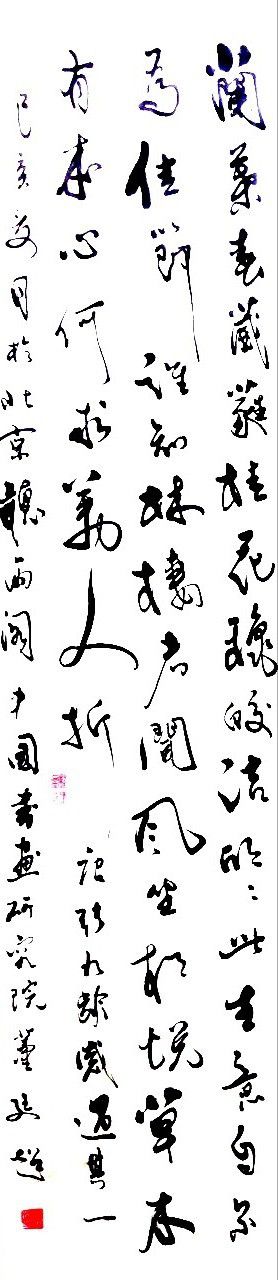 蘭葉春葳蕤桂花秋皎洁欣欣此生意自尔
為佳節誰知林棲者聞風坐相悦草木
有本心何求美人折 張九齡感遇其一
己亥夏月於北京聽雨阁中國書画研究院董